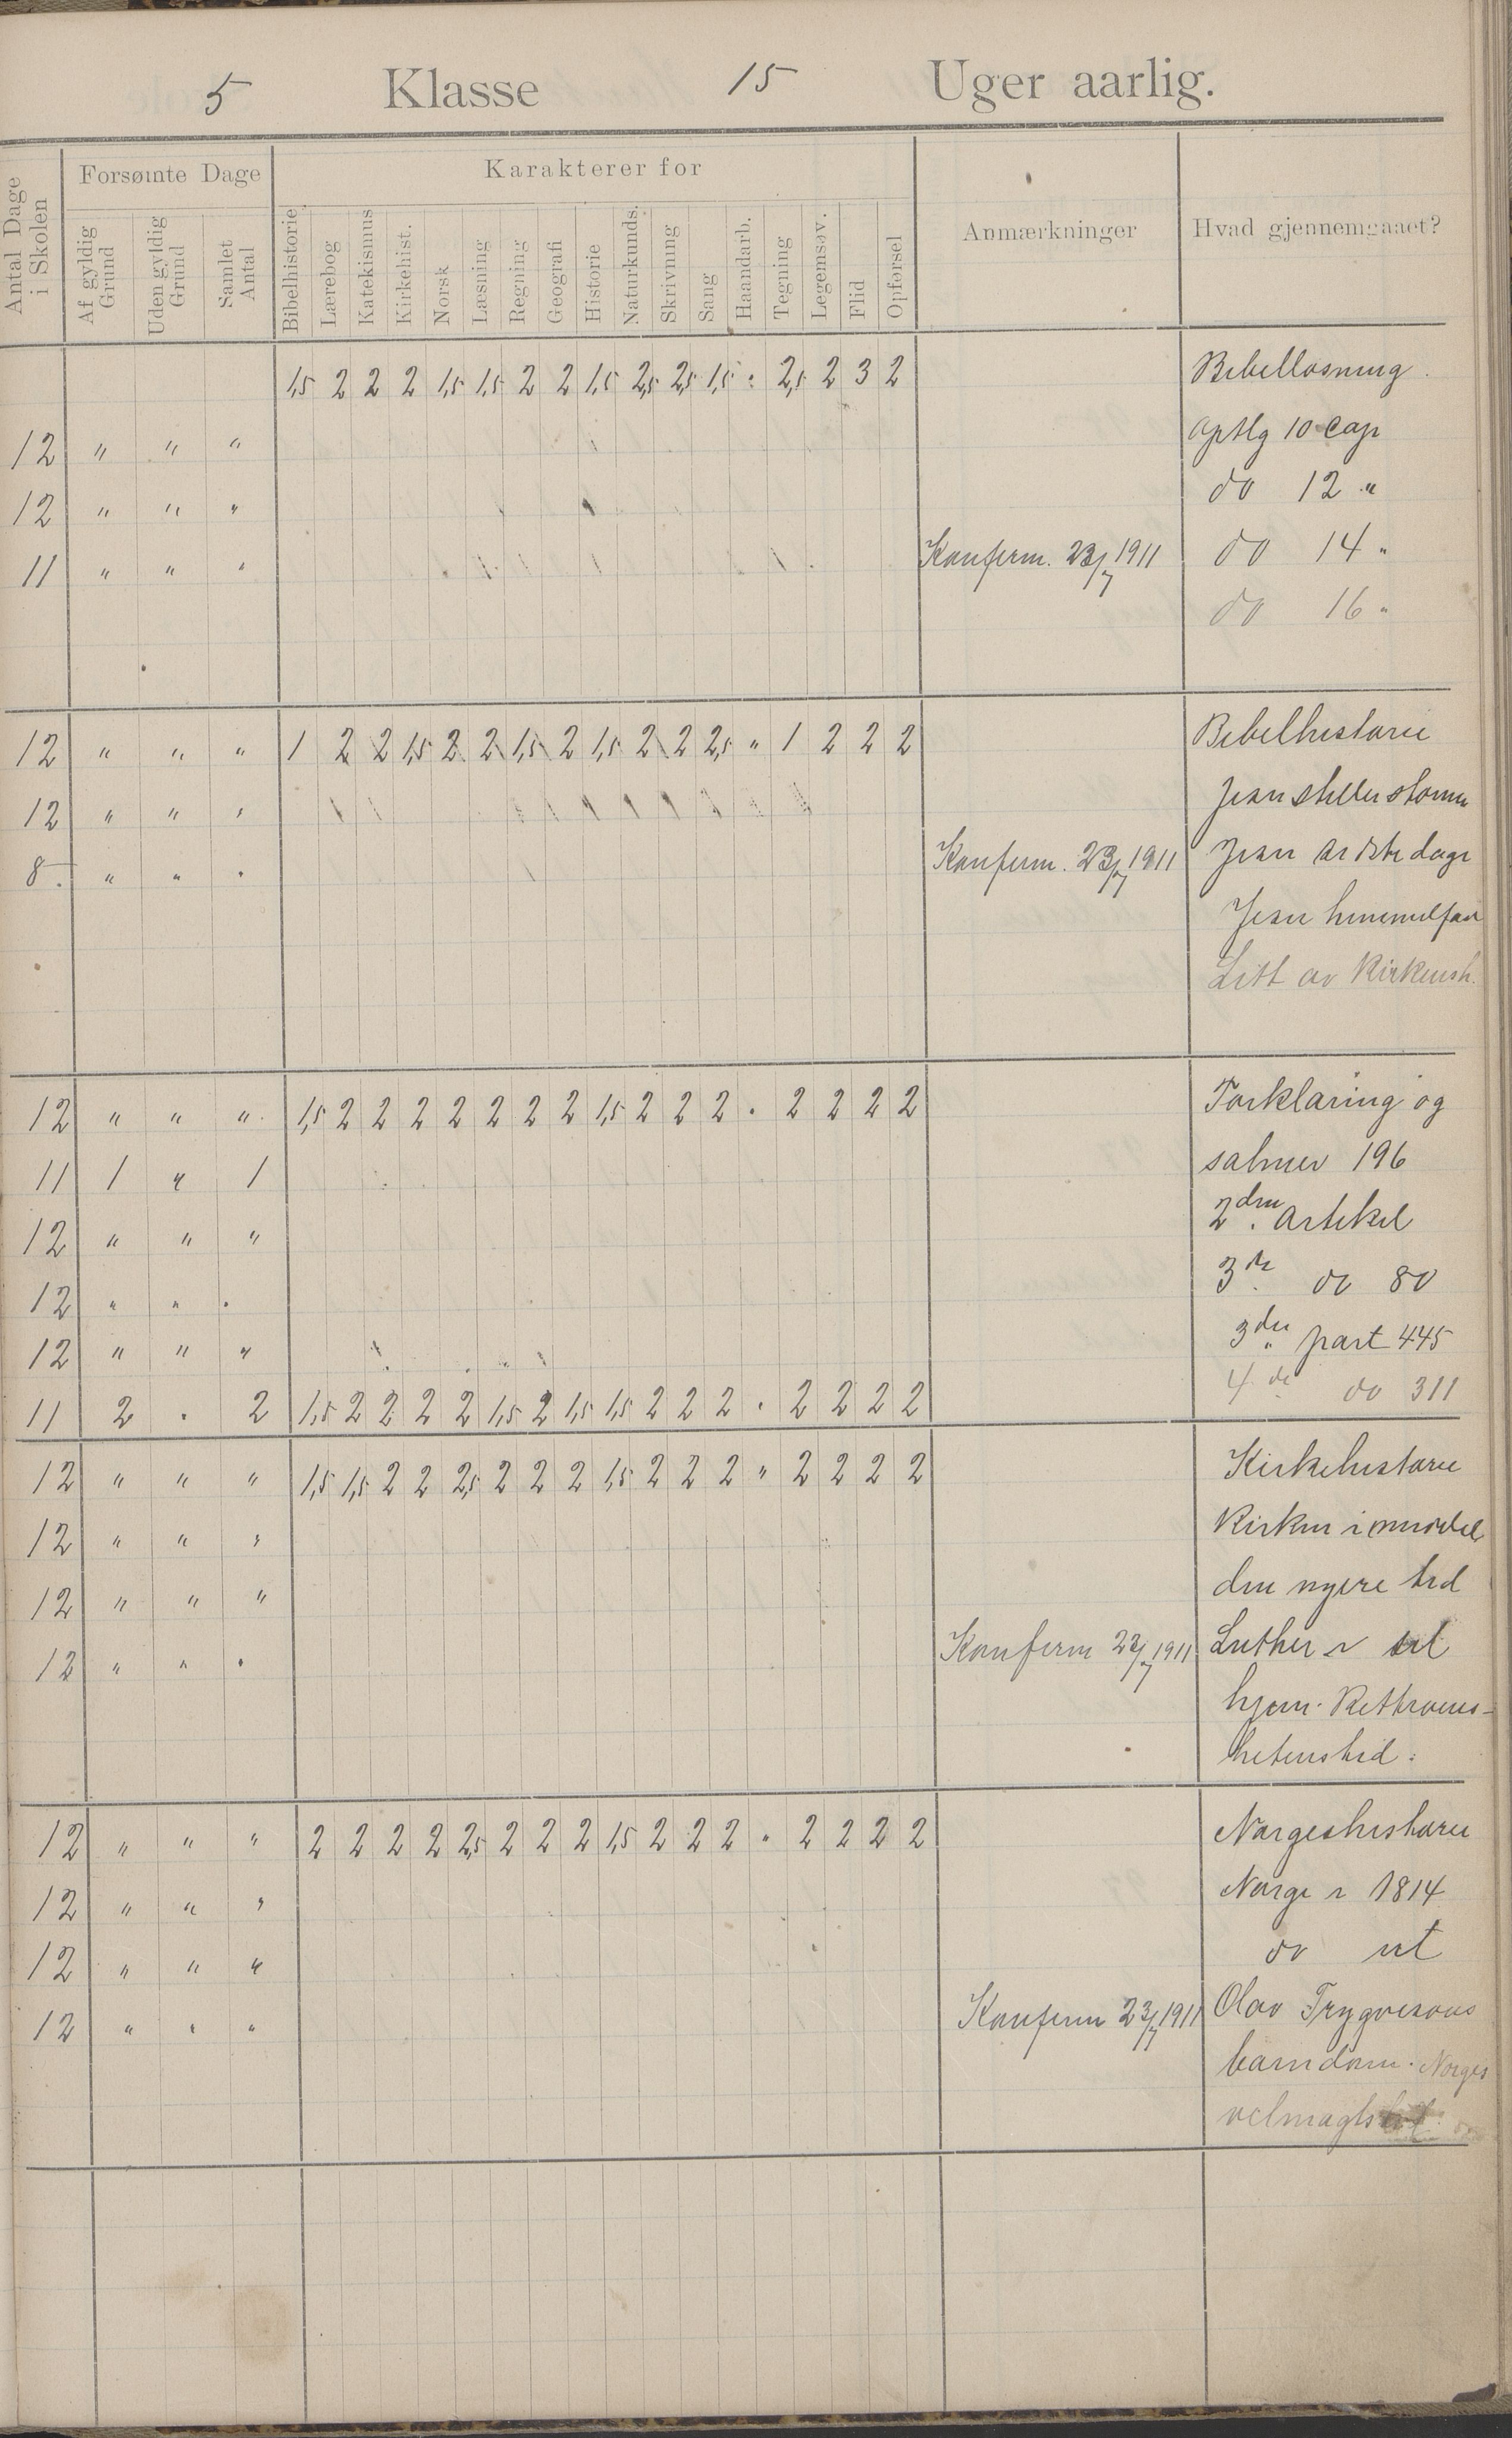 5 Klasse 15 Uger aarlig.
Antal Dage i Skolen
Forsømte Dage
Karakterer for
Af gyldig Grund
Uden gyldig Grund
Samlet Antal
Bibelhistorie Lærebog Katekismus Kirkehist. Norsk Læsning Regning Geografi Historie Naturkunds. Skrivning Sang Haandarb. Tegning Legemsøv. Flid Opførsel
Anmærkninger
Hvad gjennemgaaet?
1,5 2 2 2 1,5 1,5 2 2 1,5 2,5 2,5 1,5 " 2,5 2 3 2 Bibellæsning
12 " " " Aptlg 10 Cap
12 " " " do 12 "
11 " " " Konferm. 23/7 1911 do 14 "
do 16 "
12 " " " 1 2 2 1,5 2 2 1,5 2 1,5 2 2 2,5 " 1 2 2 2 Bibelhistorie
12 " " " Jesu stiller storm
8 " " " Konferm. 23/7 1911 Jesu sidste dage
Jesu himmelfar
Litt av Kirkensh.
12 " " " 1,5 2 2 2 2 2 2 2 1,5 2 2 2 " 2 2 2 2 Forklaring og
11 1 " 1 salmer 196
12 " " " 2den Artikel
12 " " " 3de do 80
12 " " " 3die part 445
11 2 " 2 1,5 2 2 2 2 1,5 2 1,5 1,5 2 2 2 " 2 2 2 2 4de do 311
12 " " " 1,5 1,5 2 2 2,5 2 2 2 1,5 2 2 2 " 2 2 2 2 Kirkehistorie
12 " " " Kirken i middel
12 " " " den nyere tid
12 " " " Konferm 23/7 1911 Luther i sit
hjem. Rettroens-
hetenstid.
12 " " " 2 2 2 2 2,5 2 2 2 1,5 2 2 2 " 2 2 2 2 Norgeshistorie
12 " " " Norge i 1814
12 " " " do ut
12 " " " Konferm 23/7 1911 Olav Trygvesons
barndom. Norges
velmagts